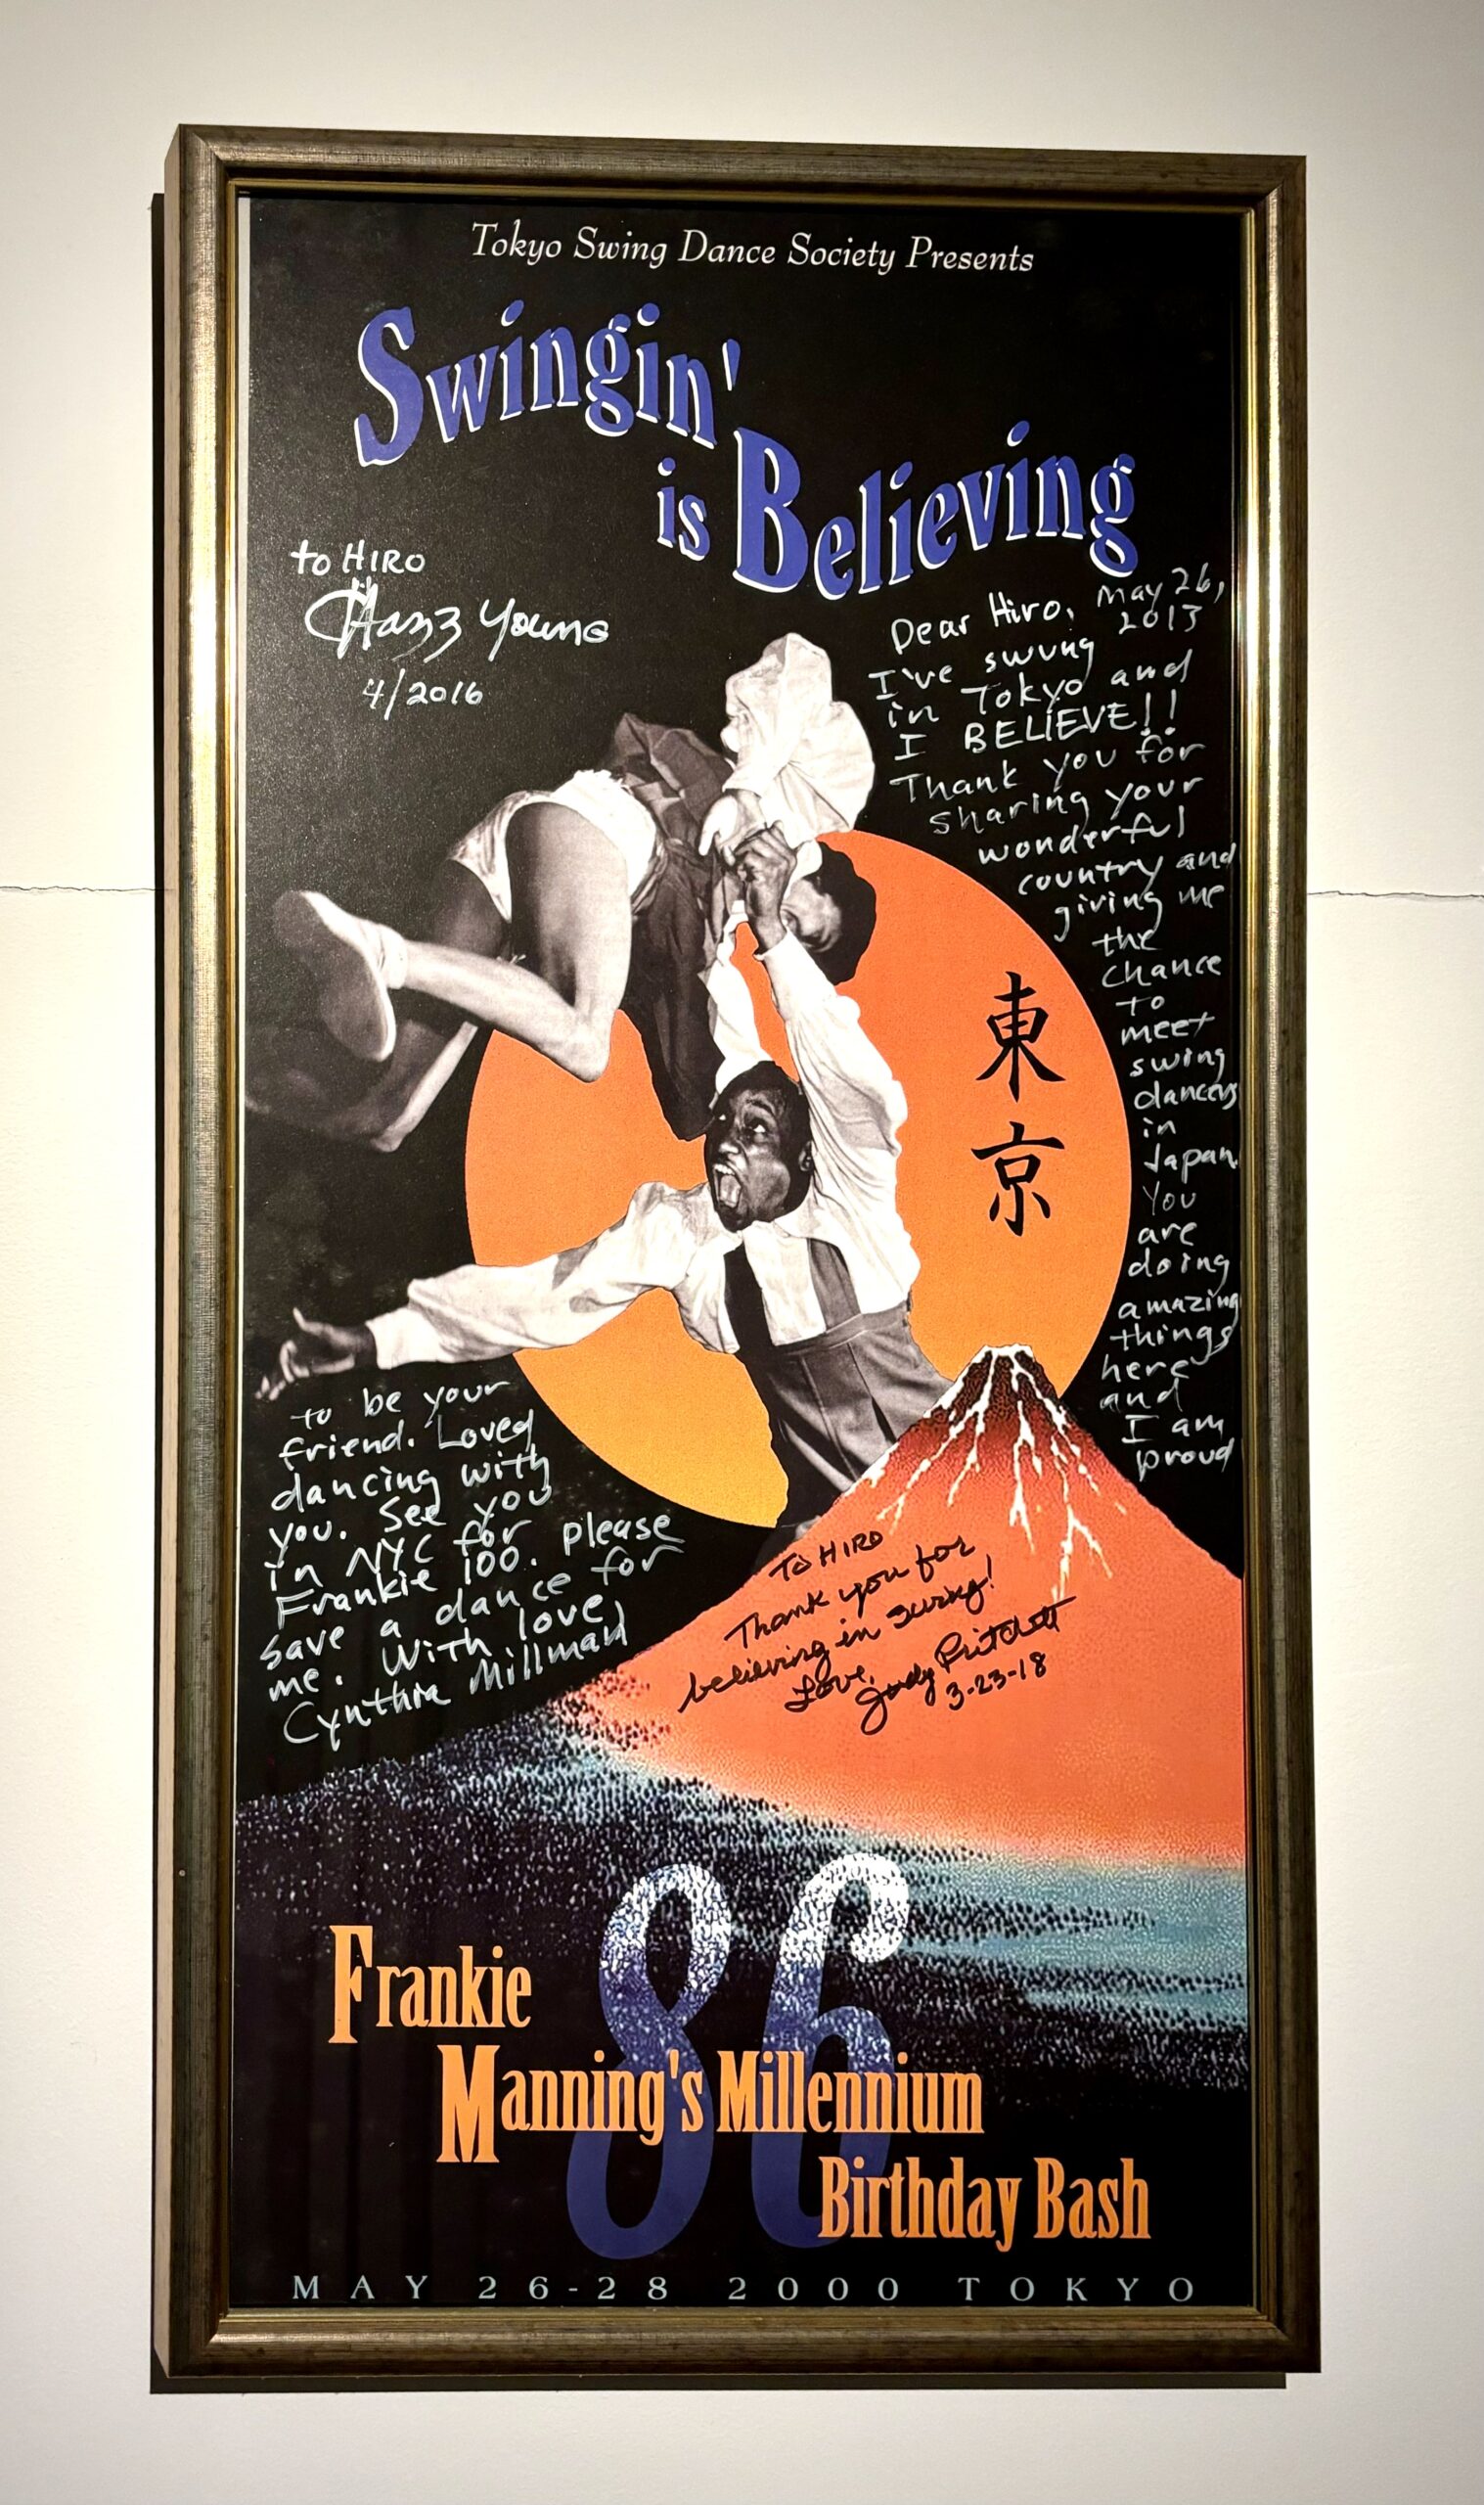 Tokyo Swing Dance Society Presents
Swingin'
is Believing
to HIRO
Chazz Young
4/2016
Dear Hiro, May 26,
2013
I've swung
in Tokyo and
I BELIEVE!!
Thank you for
sharing your
wonderful
country and
giving me
the
chance
to
meet
swing
dancers
in
Japan.
You
are
doing
amazing
things
here
and
I am
proud
to be your
friend. Loved
dancing with
you. See you
in NYC for
Frankie 100. Please
save a dance for
me. With love,
Cynthia Millman
東
京
To HIRO
Thank you for
believing in swing!
Love,
Judy Pritchett
3-23-18
86
Frankie
Manning's Millennium
Birthday Bash
MAY 26-28 2000 TOKYO